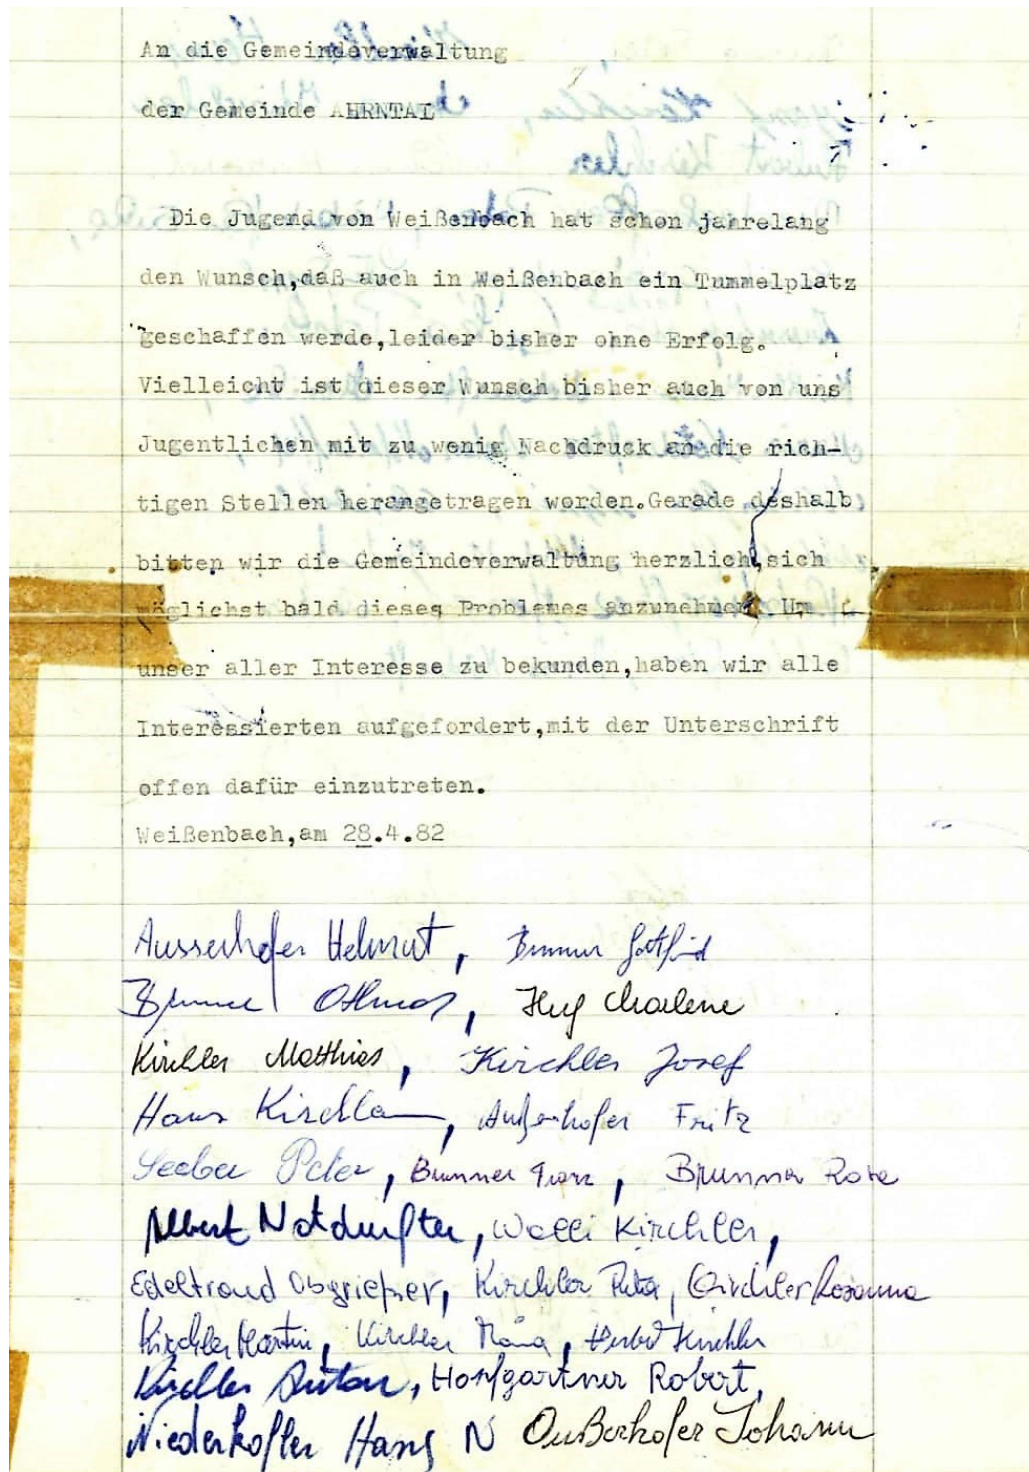 An die Gemeindeverwaltung
der Gemeinde AHRNTAL
Die Jugend von Weißenbach hat schon jahrelang
den Wunsch,daß auch in Weißenbach ein Tummelplatz
geschaffen werde,leider bisher ohne Erfolg.
Vielleicht ist dieser Wunsch bisher auch von uns
Jugentlichen mit zu wenig Nachdruck an die rich-
tigen Stellen herangetragen worden.Gerade deshalb
bitten wir die Gemeindeverwaltung herzlich,sich
möglichst bald dieses Problemes anzunehmen. Um
unser aller Interesse zu bekunden,haben wir alle
Interessierten aufgefordert,mit der Unterschrift
offen dafür einzutreten.
Weißenbach,am 28.4.82
Ausserhofer Helmut, Brunner Gottfried
Brunner Othmar, Hug Charlene
Kirchler Matthias, Kirchler Josef
Hans Kirchler, Außerhofer Fritz
Seeber Peter, Brunner Franz, Brunner
Albert Notdurfter, Walli Kirchler,
Edeltraud Obgrießer, Kirchler Rita, Kirchler Rosanna
Kirchler Martin, Kirchler Maria, Herbert Kirchler
Kirchler Anton, Hopfgartner Robert,
Niederkofler Hans N Außerhofer Johann